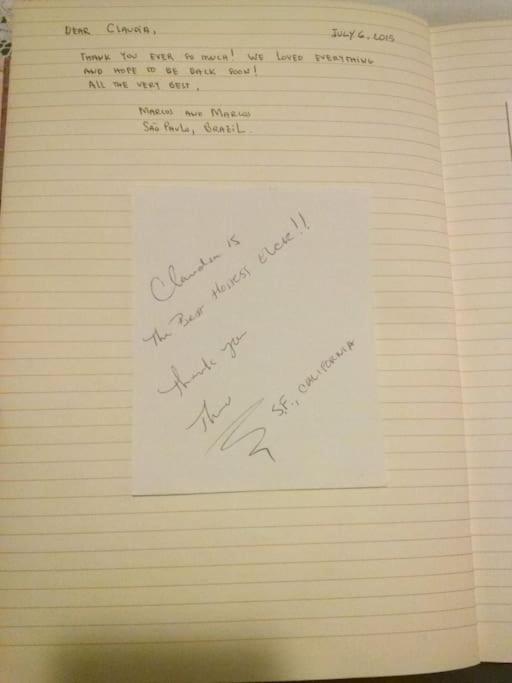 DEAR CLAUDIA,
JULY 6, 2015
THANK YOU EVER SO MUCH! WE LOVED EVERYTHING
AND HOPE TO BE BACK SOON!
ALL THE VERY BEST,
MARCOS AND MARCOS
SÃO PAULO, BRAZIL.
Claudia is
The Best Hostess Ever!!
Thank you
S.F., CALIFORNIA